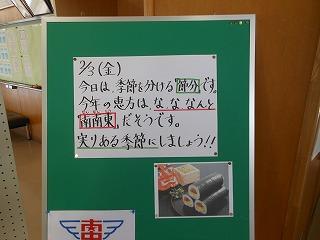 2/3(金)
今日は、季節を分ける節分です。
今年の恵方は、な な なんと
南南東、だそうです。
実りある季節にしましょう!!